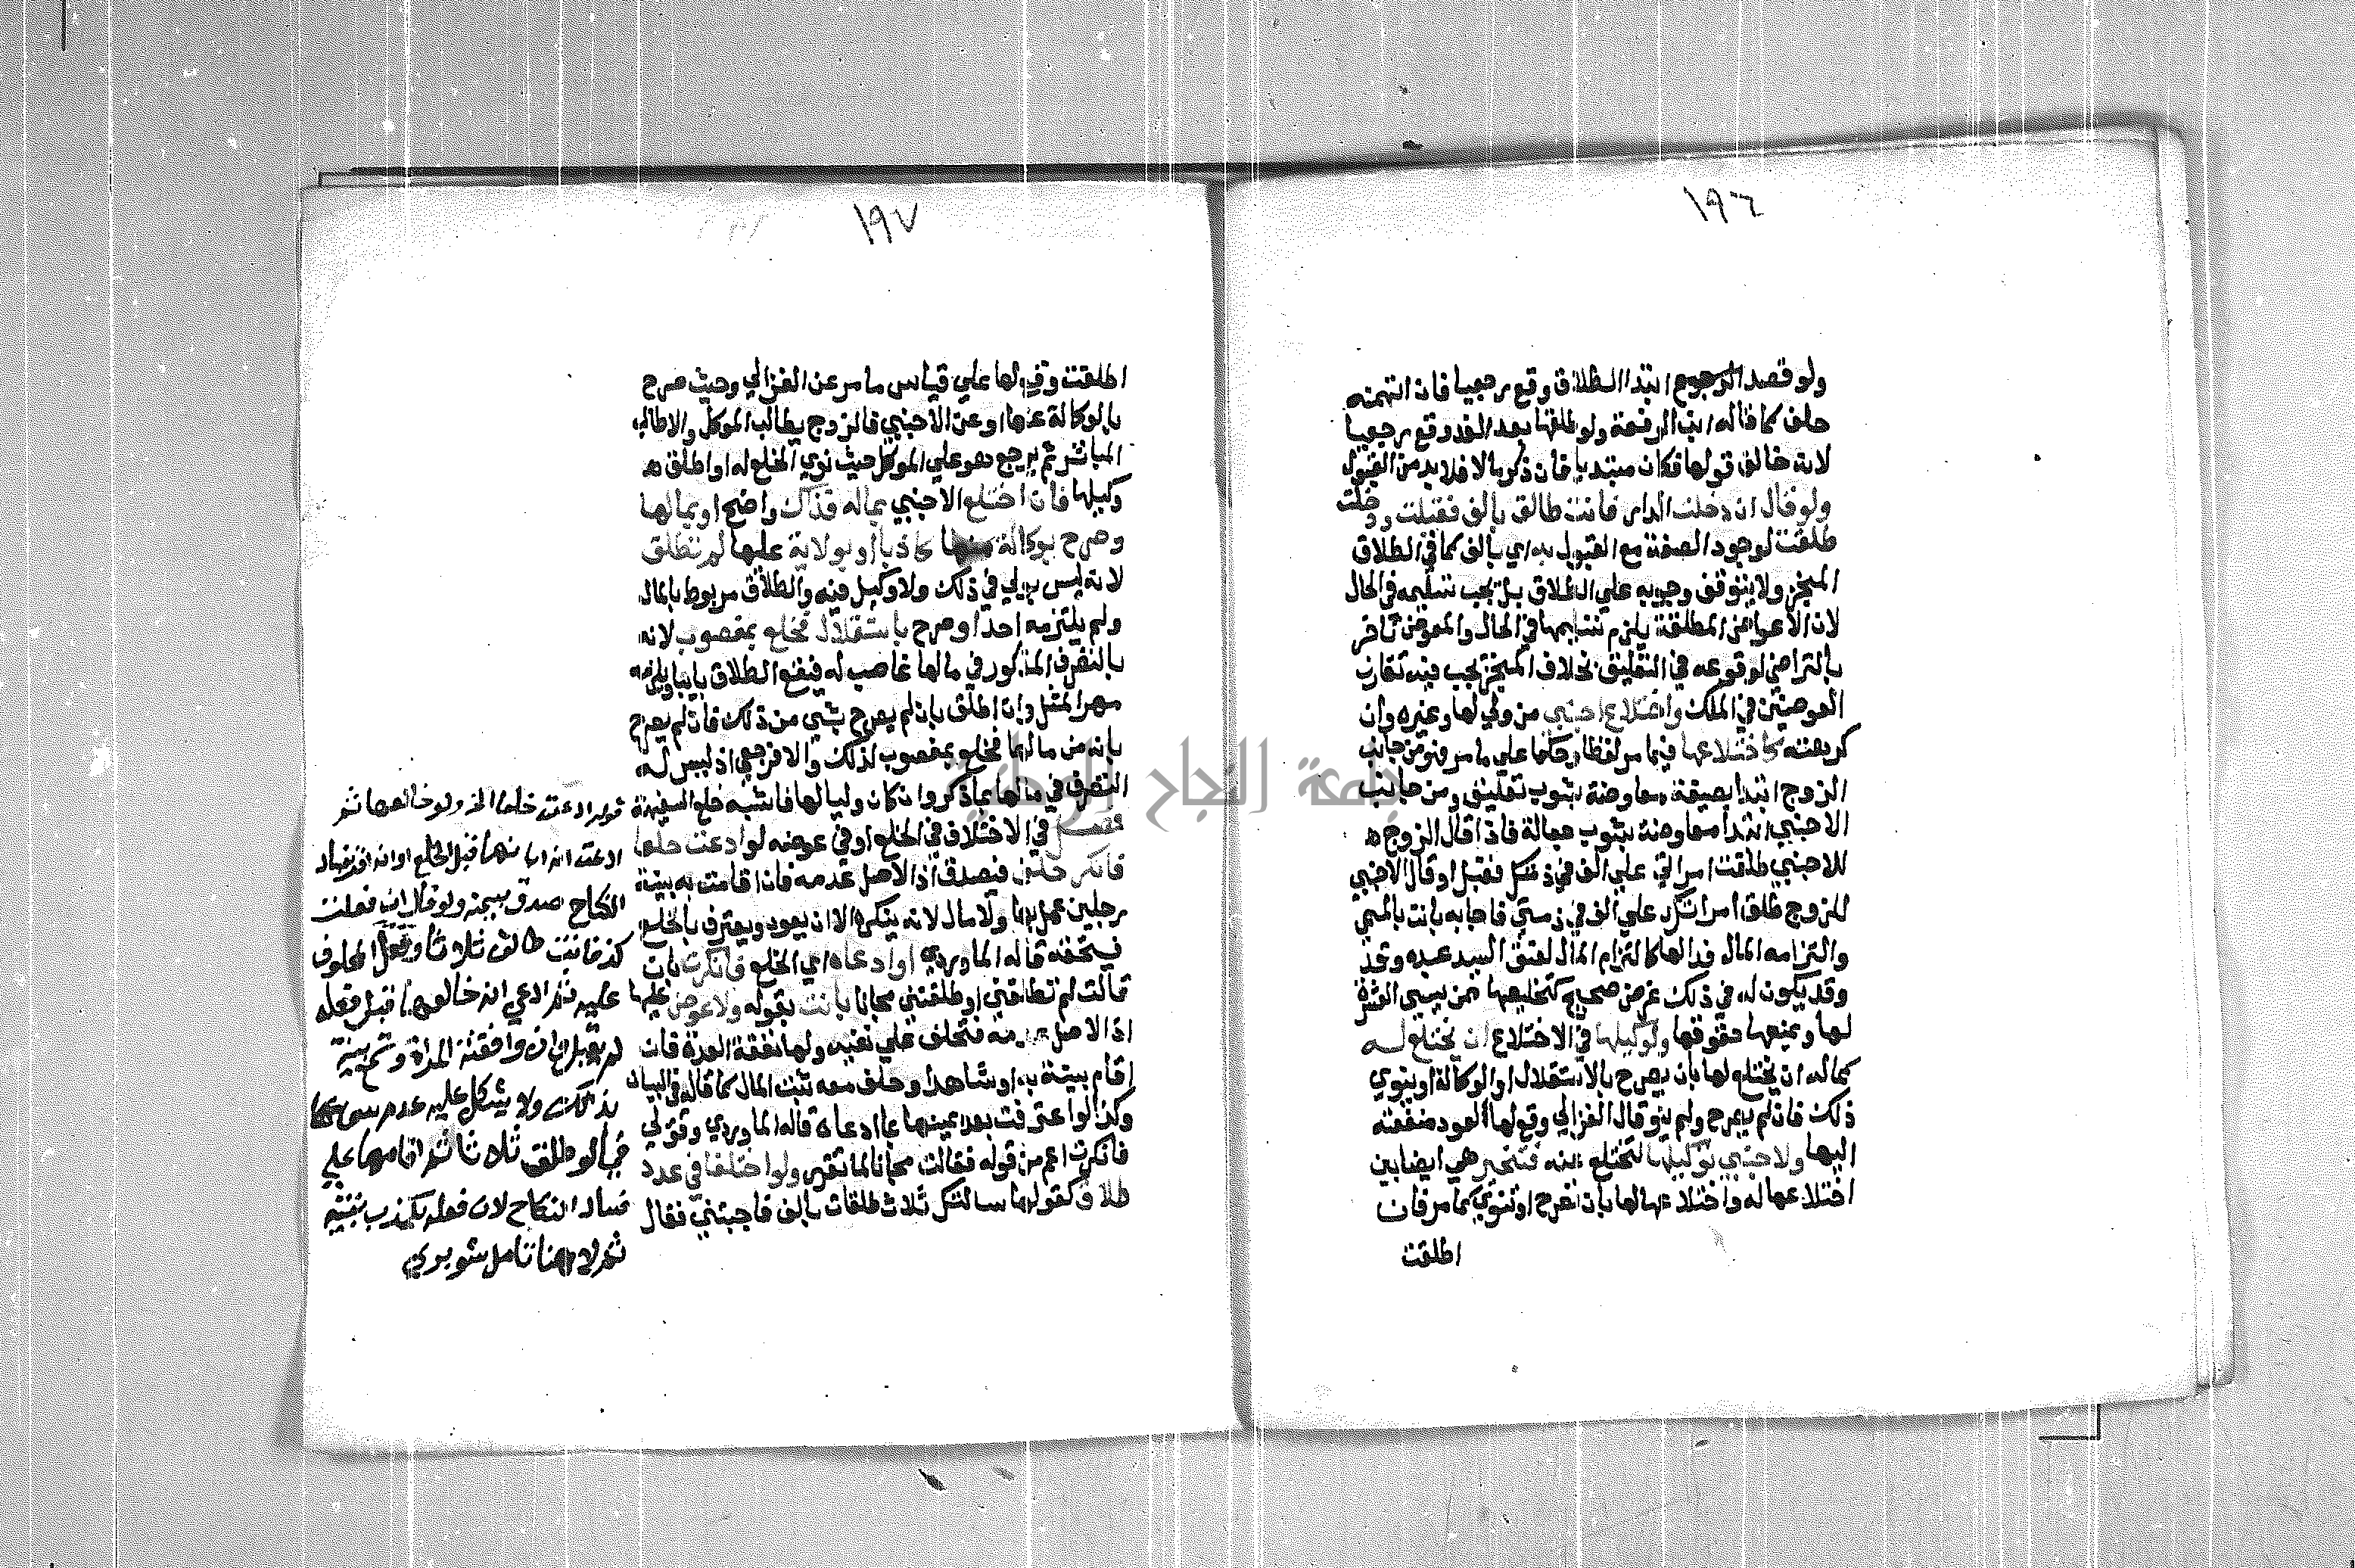 ١٩٦
ولو قصد الرجوع ابتدا الطلاق وقع رجعيا فان اتهمته
حلف كما قاله ابن الرفعة ولو طلقها بعد الغد وقع رجعيا
لانه خالف قولها فكان مبتديا فان ذكر مالا فلا بد من القبول
ولو قال ان دخلت الدار فانت طالق بالف فقبلت ودخلت
طلقت لوجود الصفة مع القبول به اي بالف كما في الطلاق
المنجز ولا يتوقف وجوبه علي الطلاق بل يجب تسليمه في الحال
لان الاعواض المطلقة يلزم تسليمها في الحال والمعوض تاخر
بالتراضي لوقوعه في التعليق بخلاف المنجز يجب فيه تقارن
العوضين في الملك واختلاع اجنبي من ولي لها وغيره وان
كرهته كاختلاعها فيما مر لفظا وحكما علي ما مر فهو من جانب
الزوج ابتدا بصيغة معاوضة بشوب تعليق ومن جانب
الاجنبي ابتدا معاوضة بشوب جعالة فاذا قال الزوج
للاجنبي طلقت امراتي علي الف في ذمتك فقبل او قال الاجنبي
للزوج طلق امراتك علي الف في ذمتي فاجابه بانت بالمسمي
والتزامه المال فدا لها كالتزام المال لعتق السيد عبده وتجد
وقد يكون له في ذلك غرض صحيح كتخليصها ممن يسيي العشرة
لها ويمنعها حقوقها ولوكيلها في الاختلاع ان يختلع له
كما له ان يختلع لها بان يصرح بالاستقلال او الوكالة او ينوي
ذلك فان لم يصرح ولم ينو قال الغزالي وقع لها لعود منفعته
اليها ولاجنبي توكيلها لتختلع عنه فتتخير هي ايضا بين
اختلاعها له واختلاعها لها بان تصرح او تنوي كما مر فان
اطلقت
١٩٧
اطلقت وقع لها علي قياس ما مر عن الغزالي وحيث صرح
بالوكالة عنها او عن الاجنبي فالزوج يطالب الموكل والا طالب
المباشر ثم يرجع هو علي الموكل حيث نوي الخلع له او اطلق
وكيلها فان اختلع الاجنبي بماله فذاك واضح او بمالها
وصرح بوكالة منها كاذبا او بولاية عليها لم تطلق
لانه ليس بولي في ذلك ولا وكيل فيه والطلاق مربوط بالمال
ولم يلتزمه احد او صرح باستقلال فخلع بمغصوب لانه
بالتصرف المذكور في مالها غاصب له فيقع الطلاق باينا ويلزمه
مهر المثل وان اطلق بان لم يصرح بشي من ذلك فان لم يصرح
بانه من مالها فخلع بمغصوب لذلك والا فرجعي اذ ليس له
التصرف في مالها بما ذكر وان كان وليا لها فاشبه خلع السفيهة
فصل في الاختلاف في الخلع او في عوضه لو ادعت خلعا
فانكر حلف فيصدق اذ الاصل عدمه فان اقامت به بينة
رجلين عمل بها ولا مال لانه ينكره الا ان يعود ويعترف بالخلع
فيستحقه قاله الماوردي او ادعاه اي الخلع فانكرت بان
قالت لم تطلقني او طلقتني مجانا بانت بقوله ولا عوض عليها
اذ الاصل عدمه فتحلف علي نفيه ولها نفقة العدة فان
اقام بينة به او شاهدا وحلف معه ثبت المال كما قاله في البيان
وكذا لو اعترفت بعد يمينها بما ادعاه قاله الماوردي وقولي
فانكرت اعم من قوله فقالت مجانا لما تقرر ولو اختلفا في عدد
طلاق كقولها سالتك ثلاث طلقات بالف فاجبتني فقال
قوله ادعت خلعا الخ ولو خالعها ثم
ادعت انه ابانها قبل الخلع او انه اقر بفساد
النكاح صدق بيمينه ولو قال ان فعلت
كذا فانت طالق ثلاثا وفعل المحلوف
عليه ثم ادعي انه خالعها قبل فعله
لم يقبل وان وافقته المراة وتسمع بينة
بذلك ولا يشكل عليه عدم سماعها
فيما لو طلق ثلاثا ثم اقامها علي
فساد النكاح لان فعله يكذب بينته
ثم لا هنا تامل شوبري
جامعة النجاح الوطنية